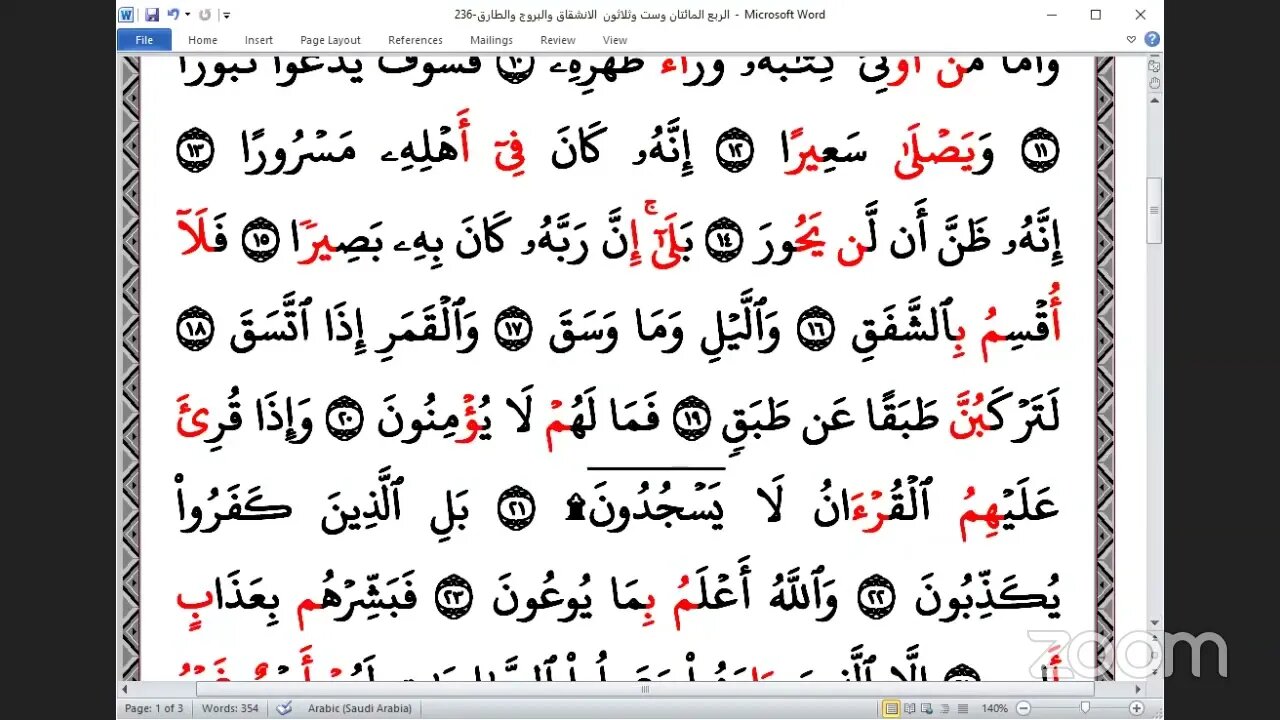 236-الربع المائتان وست وثلاثون الانشقاق والبروج والطارق - Microsoft Word
File Home Insert Page Layout References Mailings Review View
وَأَمَّا مَنْ أُوتِيَ كِتَٰبَهُۥ وَرَآءَ ظَهْرِهِۦ ١٠ فَسَوْفَ يَدْعُوا۟ ثُبُورًا
١١ وَيَصْلَىٰ سَعِيرًا ١٢ إِنَّهُۥ كَانَ فِىٓ أَهْلِهِۦ مَسْرُورًا ١٣
إِنَّهُۥ ظَنَّ أَن لَّن يَحُورَ ١٤ بَلَىٰٓۚ إِنَّ رَبَّهُۥ كَانَ بِهِۦ بَصِيرًا ١٥ فَلَآ
أُقْسِمُ بِٱلشَّفَقِ ١٦ وَٱلَّيْلِ وَمَا وَسَقَ ١٧ وَٱلْقَمَرِ إِذَا ٱتَّسَقَ ١٨
لَتَرْكَبُنَّ طَبَقًا عَن طَبَقٍ ١٩ فَمَا لَهُمْ لَا يُؤْمِنُونَ ٢٠ وَإِذَا قُرِئَ
عَلَيْهِمُ ٱلْقُرْءَانُ لَا يَسْجُدُونَ۩ ٢١ بَلِ ٱلَّذِينَ كَفَرُوا۟
يُكَذِّبُونَ ٢٢ وَٱللَّهُ أَعْلَمُ بِمَا يُوعُونَ ٢٣ فَبَشِّرْهُم بِعَذَابٍ
zoom
Page: 1 of 3 Words: 354 Arabic (Saudi Arabia) 140%